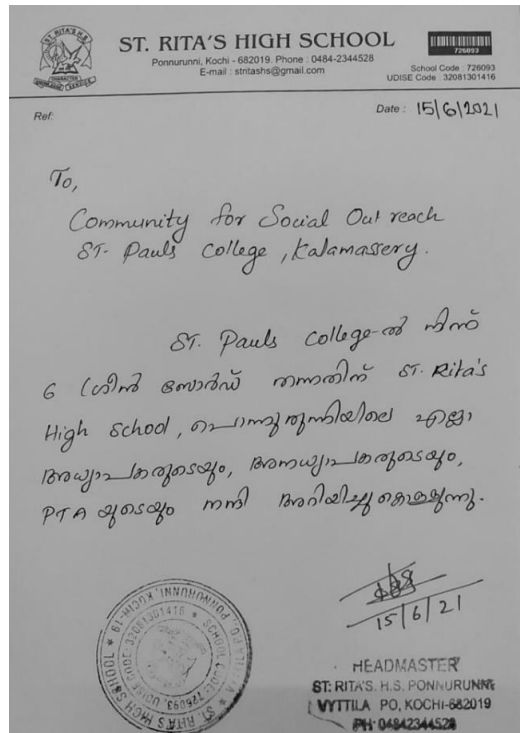 ST. RITA'S HIGH SCHOOL
Ponnurunni, Kochi - 682019. Phone : 0484-2344528
E-mail : stritashs@gmail.com
726093
School Code : 726093
UDISE Code : 32081301416
Ref:
Date : 15/6/2021
To,
Community for Social Out reach
ST- Pauls College, Kalamassery.
ST. Pauls College-ൽ നിന്ന്
6 ഗ്രീൻ ബോർഡ് തന്നതിന് ST. Rita's
High School, പൊന്നുരുന്നിയിലെ എല്ലാ
അധ്യാപകരുടെയും, അനധ്യാപകരുടെയും,
PTA യുടെയും നന്ദി അറിയിച്ചുകൊള്ളുന്നു.
15/6/21
HEADMASTER
ST: RITA'S. H.S, PONNURUNNI
VYTTILA PO, KOCHI-682019
PH: 04842344528
ST. RITA'S HIGH SCHOOL
PONNURUNNI, KOCHI-19
SCHOOL CODE: 726093, UDISE CODE: 32081301416